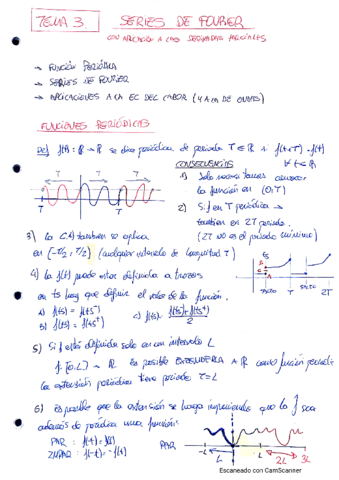 TEMA 3
SERIES DE FOURIER
CON APLICACIÓN A LAS DERIVADAS PARCIALES
→ FUNCIÓN PERIÓDICA
→ SERIES DE FOURIER
→ APLICACIONES A LA EC DEL CALOR (Y A LA DE ONDAS)
FUNCIONES PERIÓDICAS
Def f(t): R → R se dice periódica de periodo T ∈ R si f(t+T) = f(t)
∀ t ∈ R
CONSECUENCIAS
1) Solo necesitamos conocer
la función en (0,T)
2) Si f es T periódica →
también es 2T periodo.
(2T no es el periodo mínimo)
T T T
T T 2T
3) La C.1) también se aplica
en [-T/2, T/2] (cualquier intervalo de longitud T)
4) La f(t) puede estar definida a trozos
en ts hay que definir el valor de la función.
a) f(ts) = f(ts⁻)
b) f(ts) = f(ts⁺)
c) f(ts) = f(ts⁻)+f(ts⁺)/2
ts
T
5) Si f está definida solo en un intervalo L
f: [0,L] → R es posible EXTENDERLA A R como función periódica
la extensión periódica tiene periodo T=L
6) Es posible que la extensión se haga imponiendo que la f sea
además de periódica una función:
PAR: f(-t) = f(t)
IMPAR: f(-t) = -f(t)
PAR
-L L 2L 3L
L
Escaneado con CamScanner